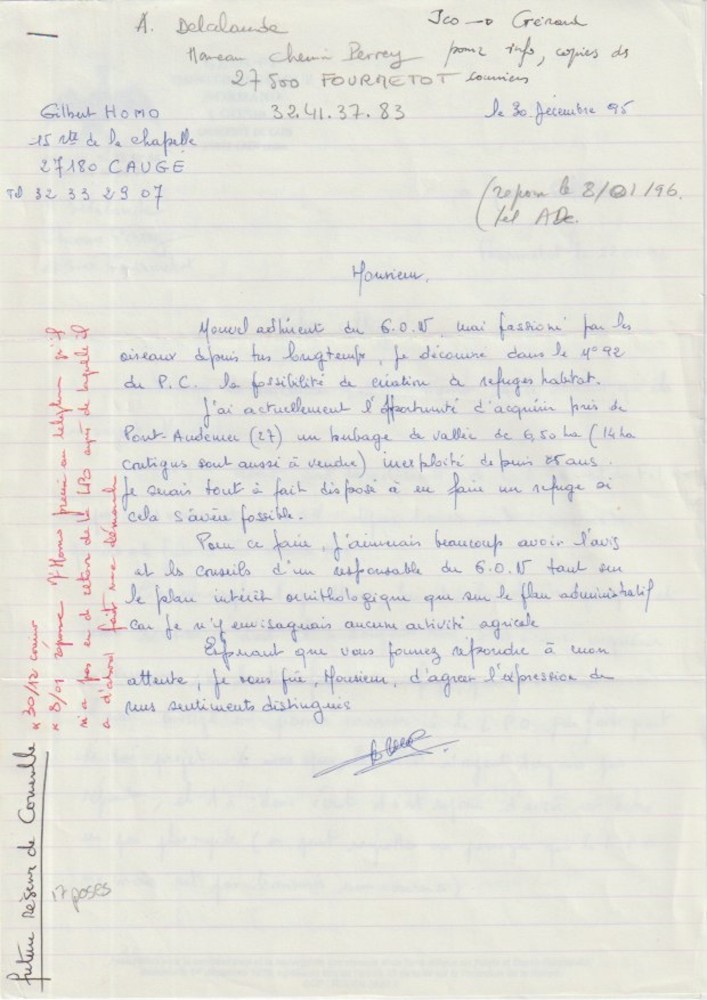 A. Delalande
Hameau Chemin Perrey
27500 FOURMETOT
32.41.37.83
Jco → Gérard
pour info, copies des
courriers
le 30 Décembre 95
Gilbert HOMO
15 rte de la chapelle
27180 CAUGE
Tel 32 33 29 07
(repon le 8/01/96.
tel ADe.
Monsieur,
Nouvel adhérent du G.O.N, mai passioné par les
oiseaux depuis très longtemps, je découvre dans le N°92
du P.C. la possibilité de création de refuges habitat.
J'ai actuellement l'opportunité d'acquérir près de
Pont-Audemer (27) un herbage de vallée de 6,50 ha (14 ha
contigus sont aussi à vendre) inexploité depuis 25 ans.
Je serais tout à fait disposé à en faire un refuge si
cela s'avère possible.
Pour ce faire, j'aimerais beaucoup avoir l'avis
et les conseils d'un responsable du G.O.N tant sur
le plan intérêt ornithologique que sur le plan administratif
car je n'y envisageais aucune activité agricole
Espérant que vous pourrez répondre à mon
attente, je vous prie, Monsieur, d'agréer l'expression de
mes sentiments distingués
future réserve de Corneville
* 30/12 courrier
* 8/01 réponse M Homo prévenu au téléphone qu'il
n'a pas eu de retour de la LPO auprès de laquelle il
a d'abord fait une démarche
17 poses